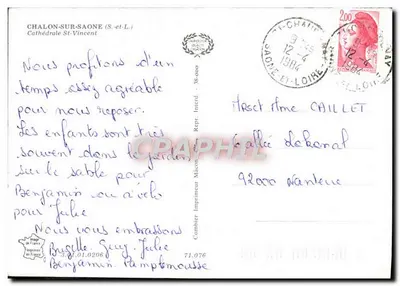 CHALON-SUR-SAONE (S.-et-L.)
Cathédrale St-Vincent
Nous profitons d'un
temps assez agréable
pour nous reposer.
Les enfants sont très
souvent dans le jardin
sur le sable pour
Benjamin ou à vélo
pour Julie
Nous vous embrassons
Brigitte Guy Julie
Benjamin Pamplemousse
71.01.0296
71.076
Combier imprimeur Mâcon
2,00
12-4
1984
SAONE-ET-LOIRE
M et Mme CAILLET
allée
92000 Nanterre
CPARAMA